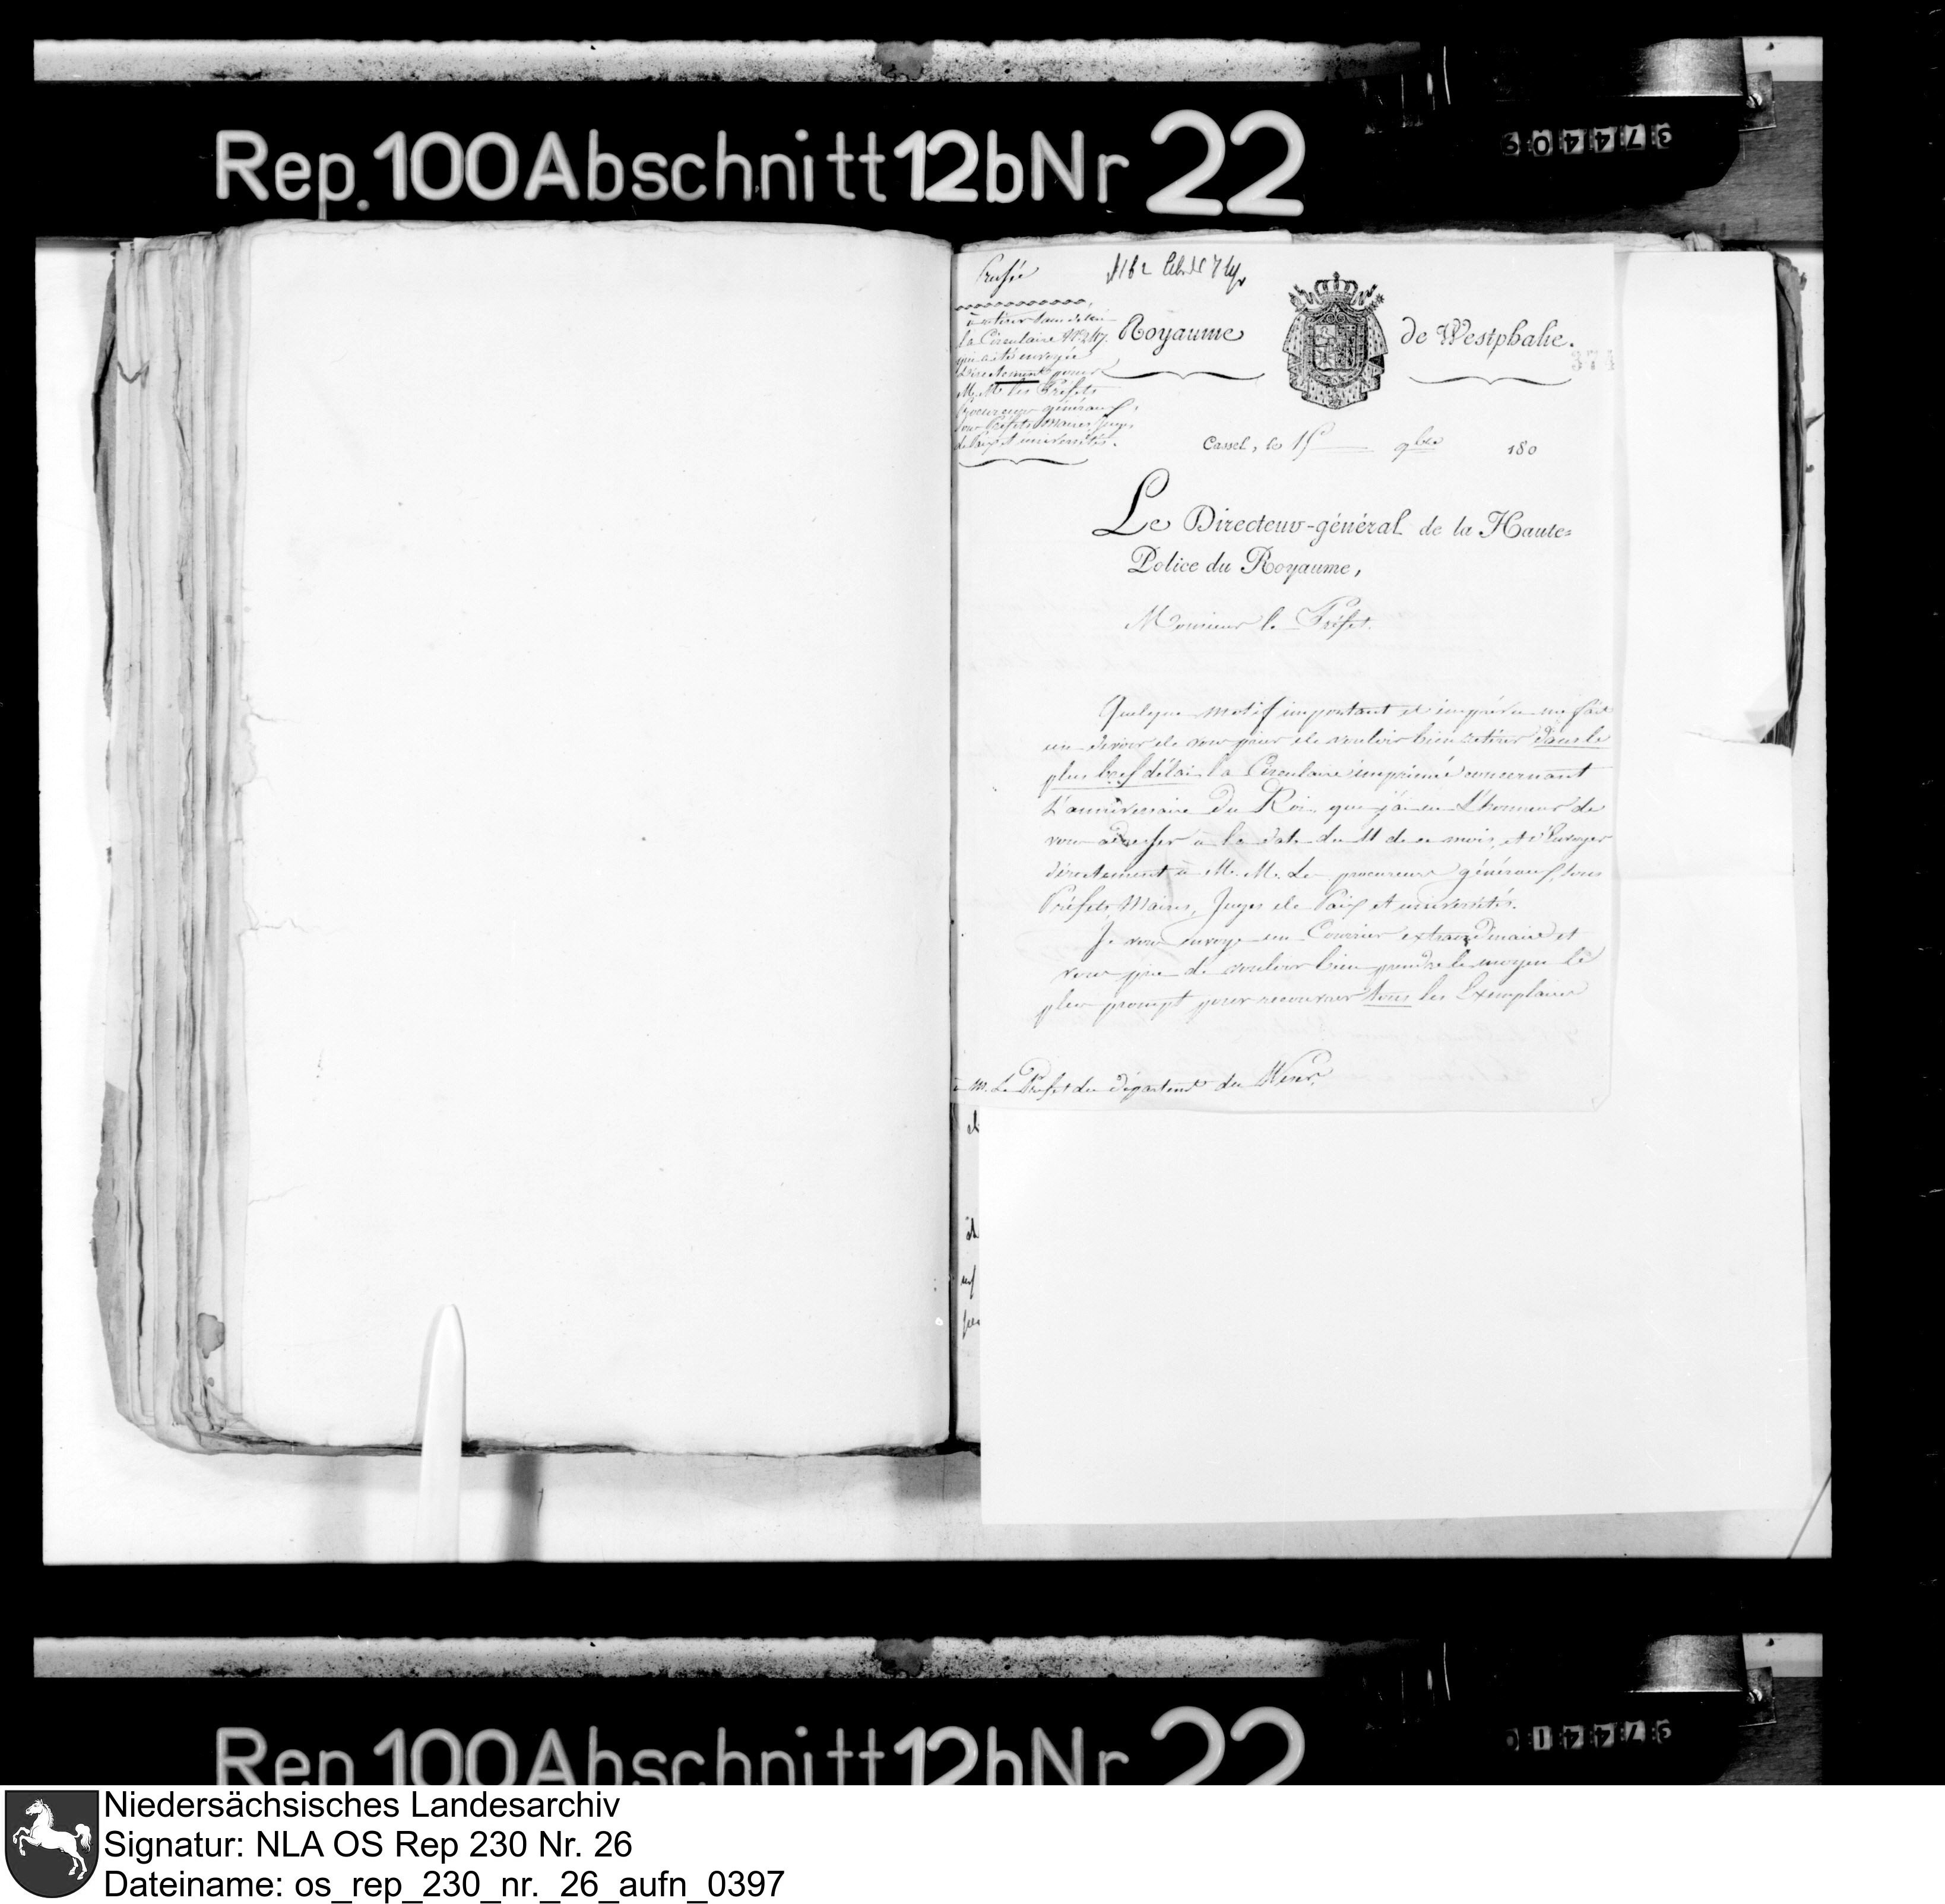 Rep. 100 Abschnitt 12b Nr 22
Royaume de Westphalie.
à retirer sans délai
la Circulaire
qui a été envoyée
directement pour
M. M. les Préfets
Procureurs généraux,
Sous Préfets Maires Juges
de Paix et universités.
374
Cassel, le 15 9bre 180
Le Directeur-général de la Haute-
Police du Royaume,
Monsieur le Préfet.
Quelque motif important et imprévu me fait
un devoir de vous prier de vouloir bien retirer dans le
plus bref délai la Circulaire imprimée concernant
l'anniversaire du Roi que j'ai eu l'honneur de
vous adresser à la date du 11 de ce mois, et d'Envoyer
directement à M. M. Les procureurs généraux, sous
Préfets, Maires, Juges de Paix et universités.
Je vous envoye un Courrier extraordinaire et
vous prie de vouloir bien prendre le moyen le
plus prompt pour recouvrer tous les Exemplaires
à M. Le Préfet du départemt du Weser.
Rep. 100 Abschnitt 12b Nr 22
Niedersächsisches Landesarchiv
Signatur: NLA OS Rep 230 Nr. 26
Dateiname: os_rep_230_nr._26_aufn_0397